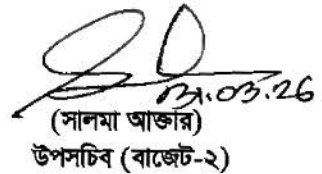 ০৯.০৩.26
(সালমা আক্তার)
উপসচিব (বাজেট-২)